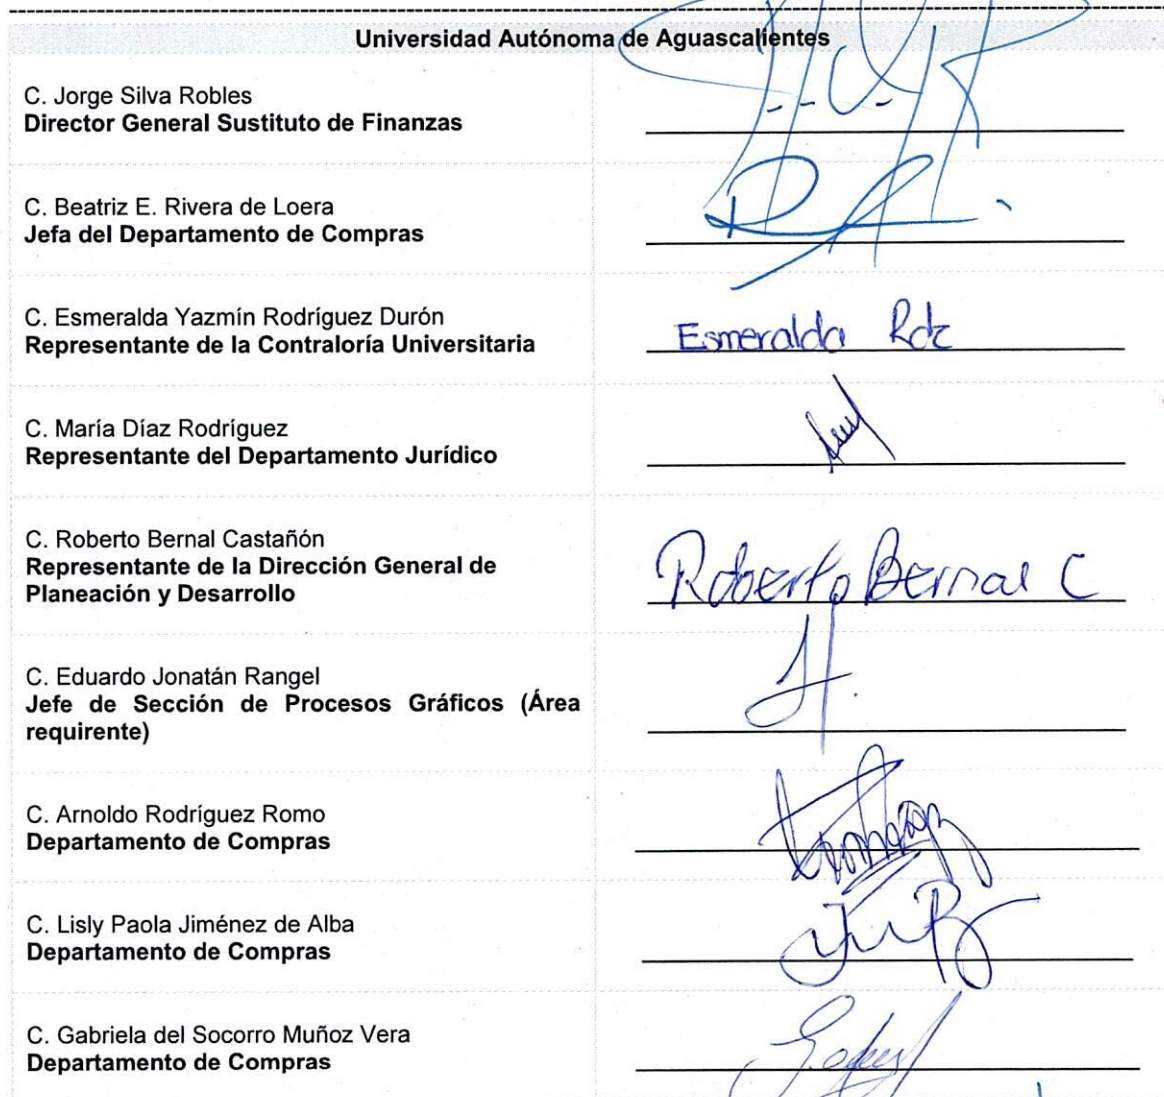 Universidad Autónoma de Aguascalientes
C. Jorge Silva Robles
Director General Sustituto de Finanzas
C. Beatriz E. Rivera de Loera
Jefa del Departamento de Compras
C. Esmeralda Yazmín Rodríguez Durón
Representante de la Contraloría Universitaria
Esmeralda Rdz
C. María Díaz Rodríguez
Representante del Departamento Jurídico
C. Roberto Bernal Castañón
Representante de la Dirección General de
Planeación y Desarrollo
Roberto Bernal C
C. Eduardo Jonatán Rangel
Jefe de Sección de Procesos Gráficos (Área
requirente)
C. Arnoldo Rodríguez Romo
Departamento de Compras
C. Lisly Paola Jiménez de Alba
Departamento de Compras
C. Gabriela del Socorro Muñoz Vera
Departamento de Compras